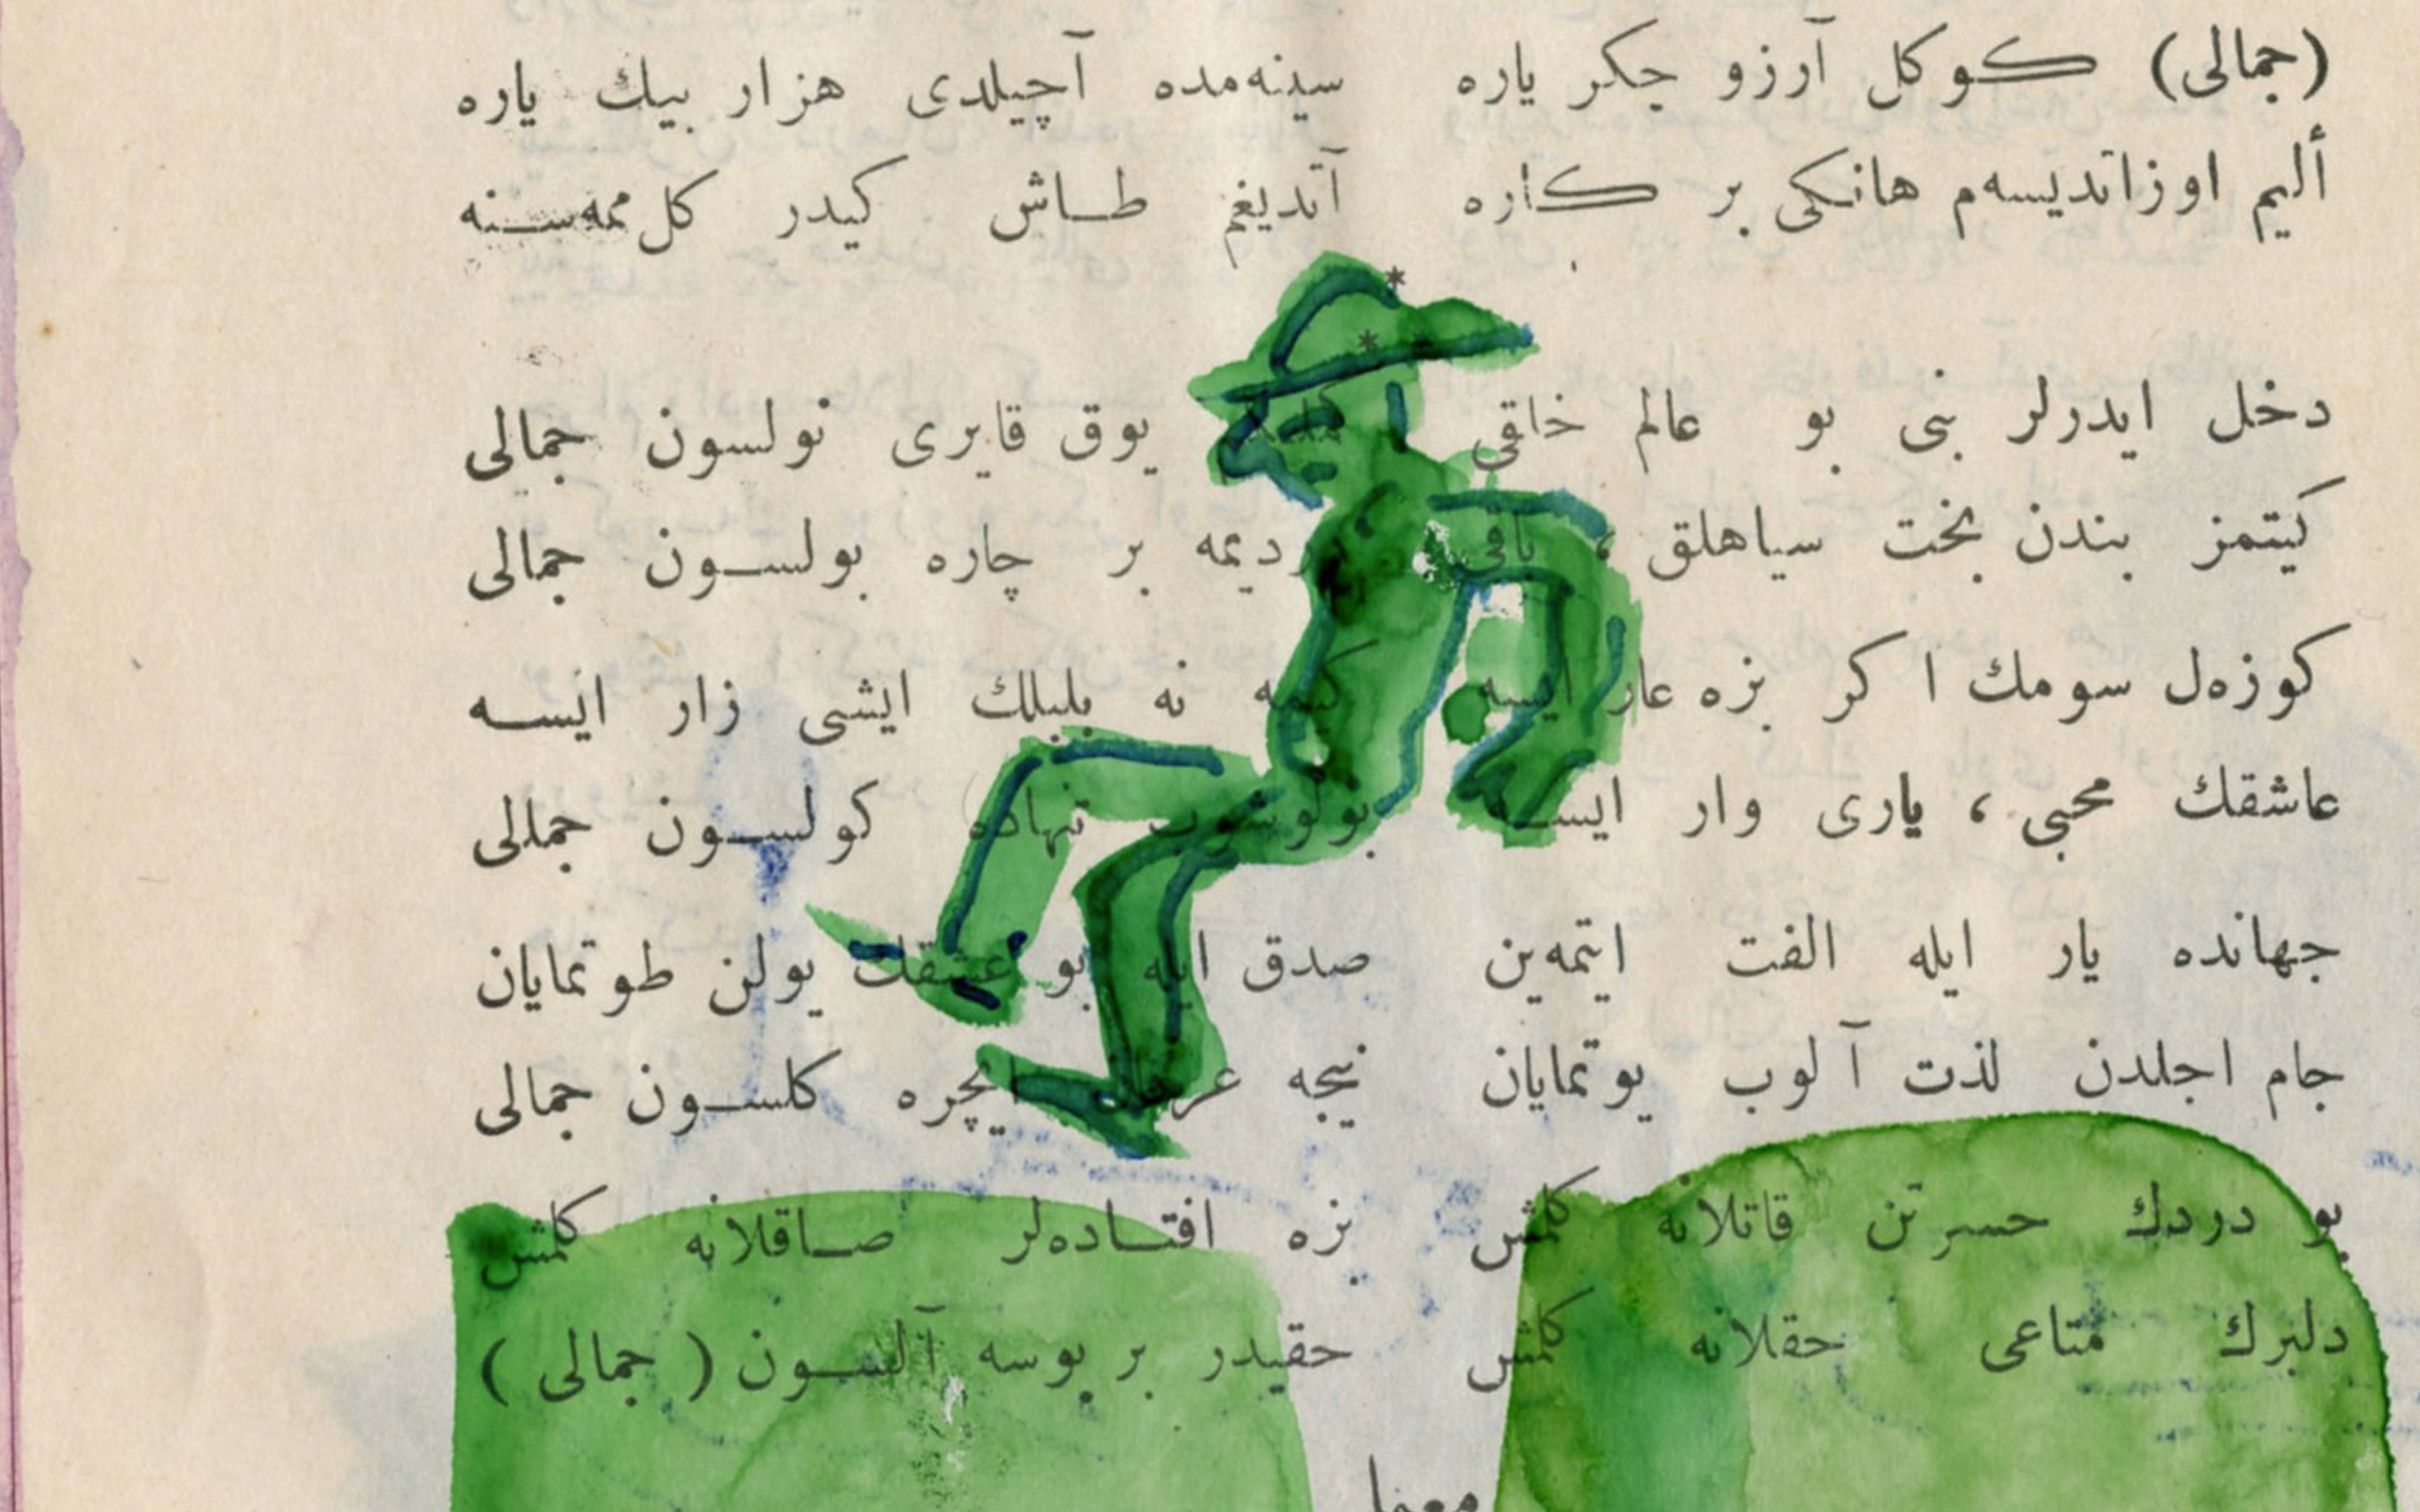 (جمالی) كوكل آرزو جكر ياره سينه‌مده آچيلدی هزار بيك ياره
ألیم اوزاتديسه‌م هانكی بر كاره آتديغم طاش كيدر كل ممه‌سنه
*
*
دخل ايدرلر بنی بو عالم خاقی يوق قايری نولسون جمالی
كيتمز بندن بخت سياهلق ، باقی دردیمه بر چاره بولسون جمالی
كوزه‌ل سومك اكر بزه عار ايسه كيمه نه بلبلك ايشی زار ايسه
عاشقك محبی ، ياری وار ايسه بولوشوب تنهاده كولسون جمالی
جهانده يار ايله الفت ايتمه‌ين صدق ايله بو عشقك يولن طوتمايان
جام اجلدن لذت آلوب يوتمايان نيجه ايچره كلسون جمالی
بو دردك حسرتن قاتلانه كلمش بزه افتاده‌لر صاقلانه كلمش
دلبرك متاعی حقلانه كلمش حقيدر بر بوسه آلسون (جمالی)
معما